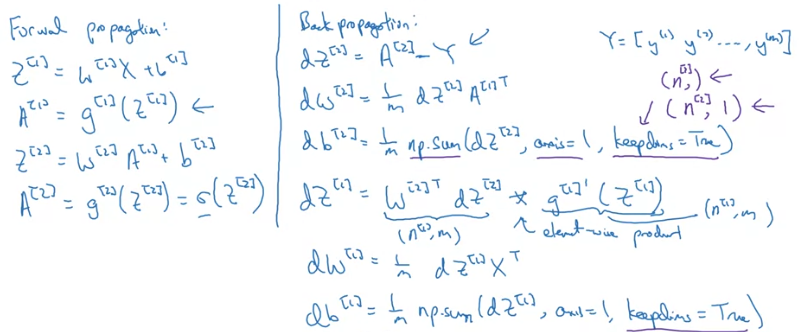 Forward propagation:
Z^[1] = W^[1] X + b^[1]
A^[1] = g^[1](Z^[1]) ←
Z^[2] = W^[2] A^[1] + b^[2]
A^[2] = g^[2](Z^[2]) = σ(Z^[2])
Back propagation:
dZ^[2] = A^[2] - Y ↙
dW^[2] = 1/m dZ^[2] A^[1]T
db^[2] = 1/m np.sum(dZ^[2], axis=1, keepdims=True)
dZ^[1] = W^[2]T dZ^[2] * g^[1]'(Z^[1])
(n^[1], m) ↖ element-wise product (n^[1], m)
dW^[1] = 1/m dZ^[1] X^T
db^[1] = 1/m np.sum(dZ^[1], axis=1, keepdims=True)
Y = [y^(1) y^(2) ..., y^(m)]
(n^[2],) ←
↙ (n^[2], 1) ←